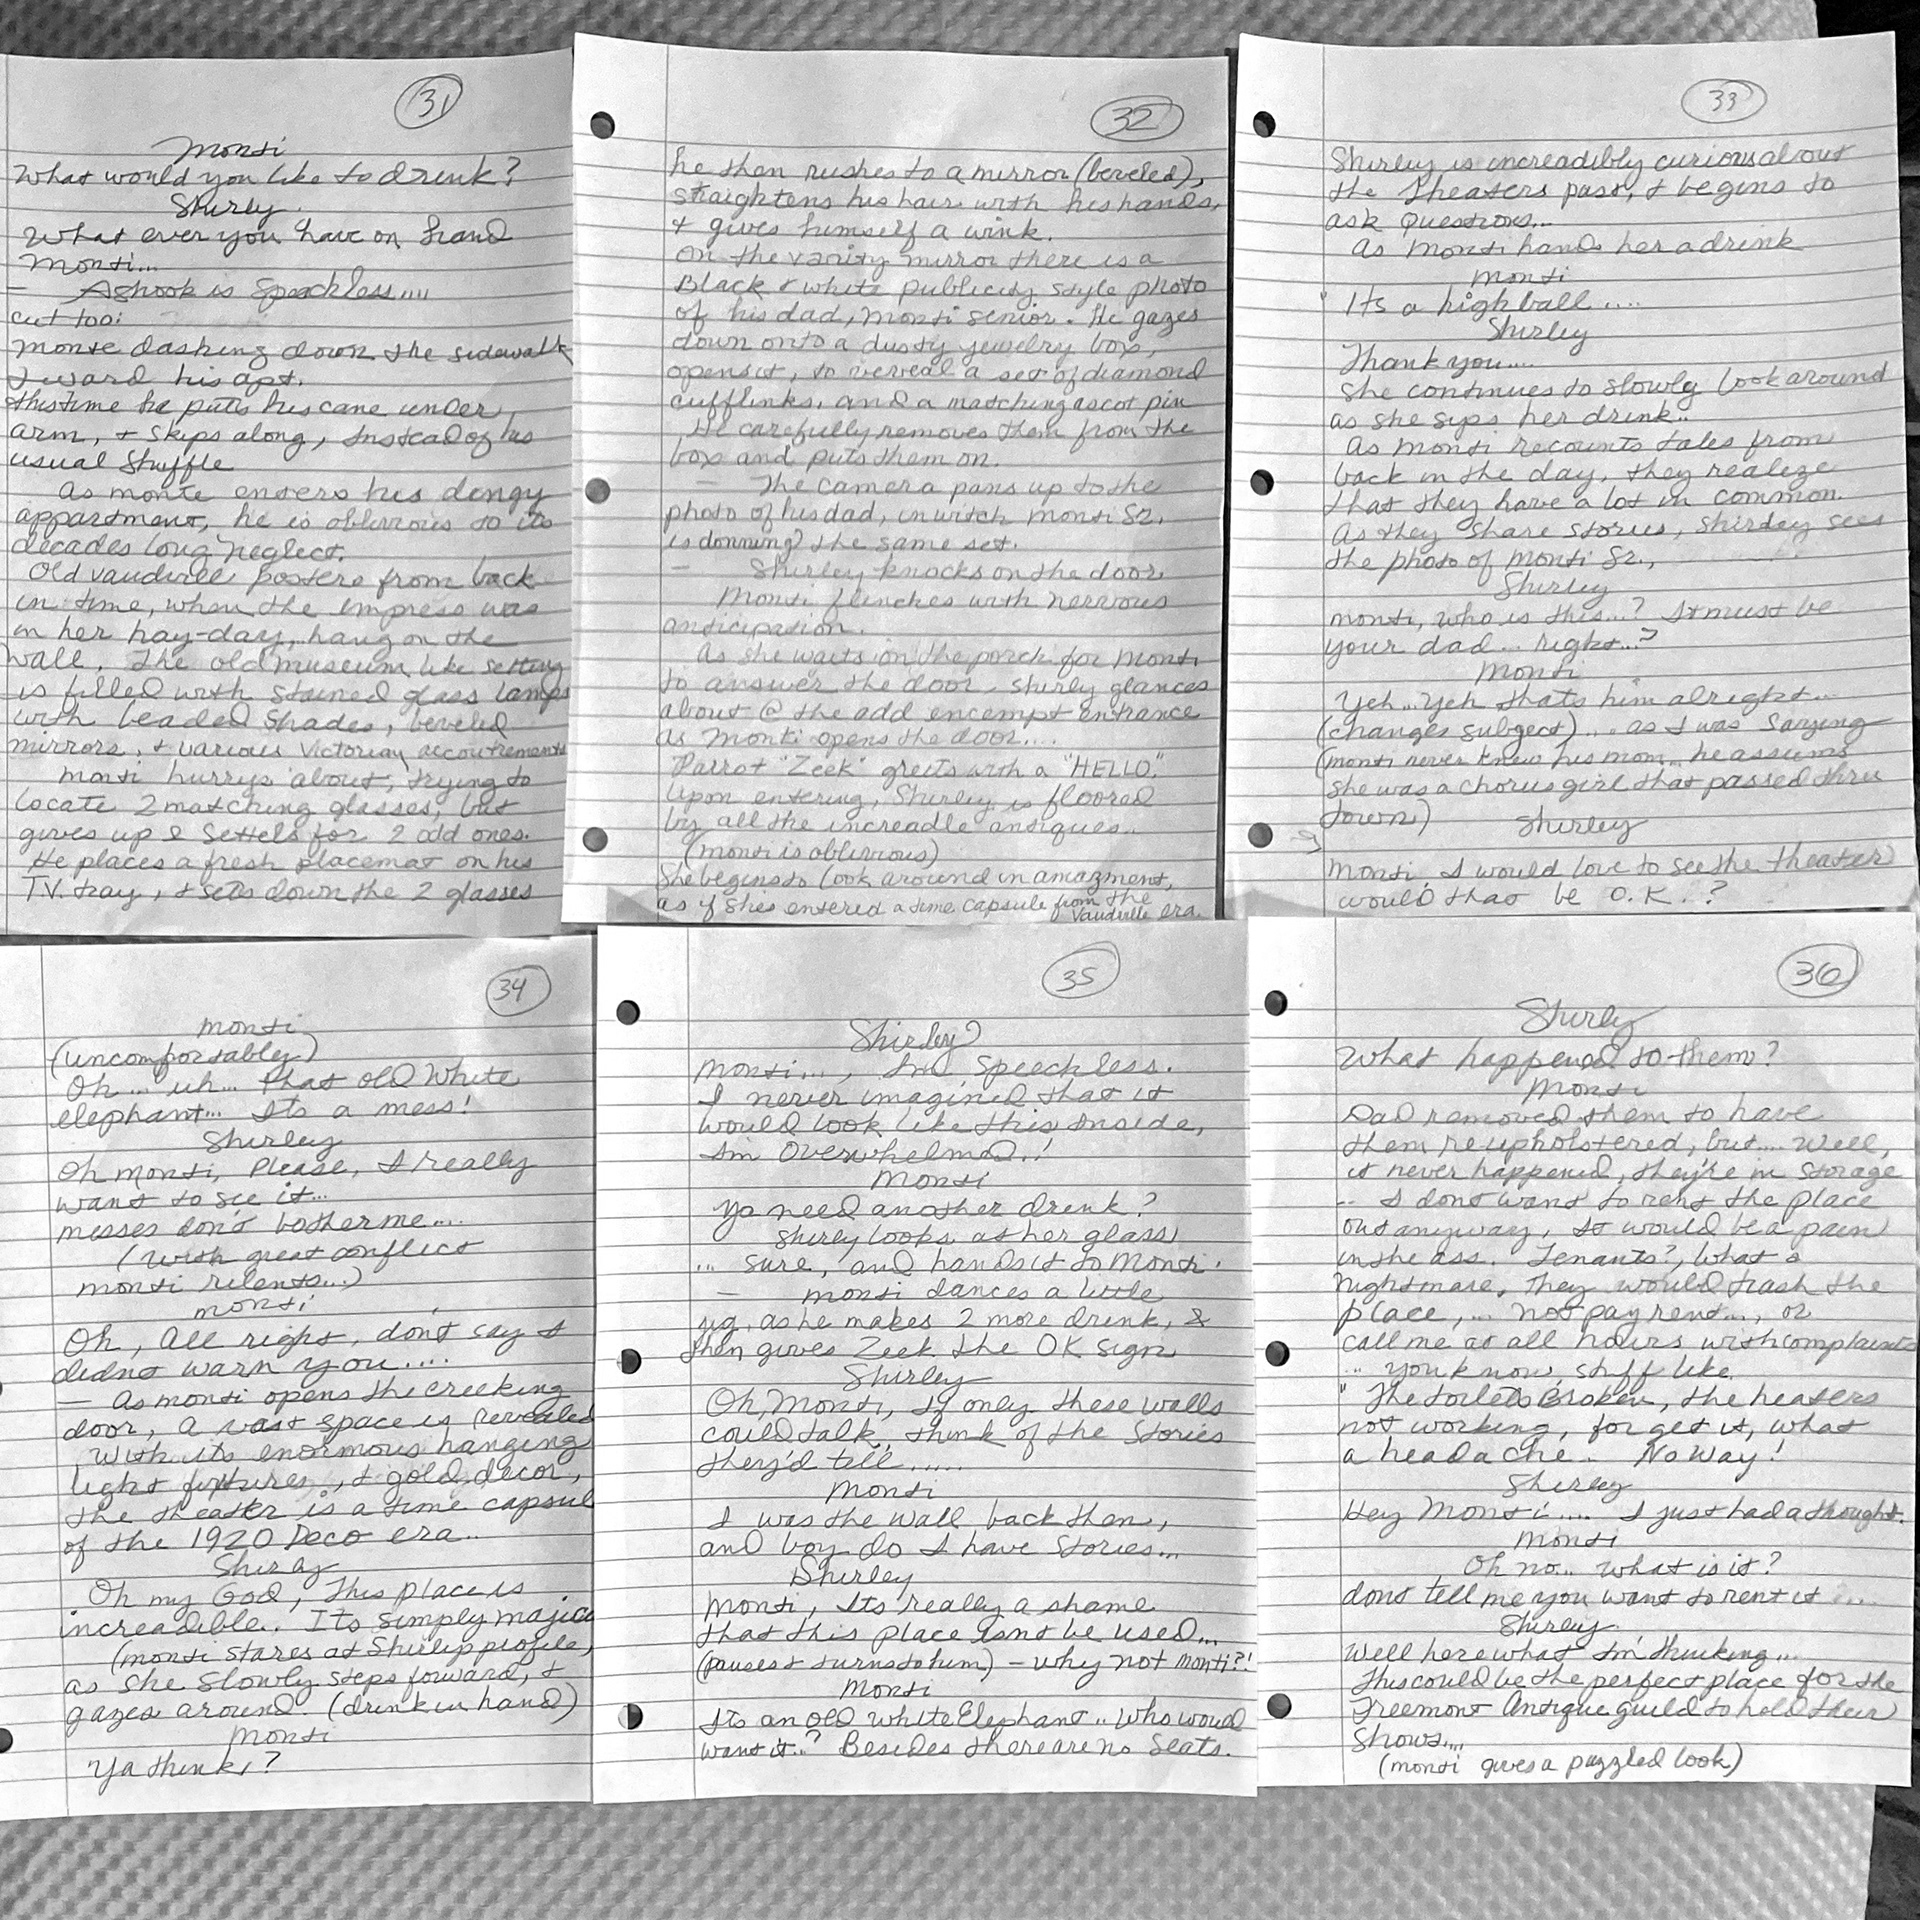 31
Monti
What would you like to drink?
Shirly.
What ever you have on hand
Monti...
— Ashook is Speechless....
cut too:
Monte dashing down the sidewalk
toward his apt.
this time he puts his cane under
arm, & skips along, instead of his
usual shuffle
As monte enters his dingy
appartment, he is oblivious to its
decades long neglect.
Old vaudvill posters from back
in time, when the empress was
in her hay-day, hang on the
wall. The old museum like setting
is filled with stained glass lamps
with beaded shades, beveled
mirrors, & various Victorian accoutrements
monti hurrys about, trying to
locate 2 matching glasses, but
gives up & settels for 2 odd ones.
He places a fresh placemat on his
T.V. tray, & sets down the 2 glasses
32
he then rushes to a mirror (beveled),
straightens his hair with his hands,
& gives himself a wink.
on the vanity mirror there is a
Black & white publicity style photo
of his dad, monti senior. He gazes
down onto a dusty jewelry box,
opens it, to reveal a set of diamond
cufflinks, and a matching ascot pin
He carefully removes them from the
box and puts them on.
— The camera pans up to the
photo of his dad, in witch monti Sr.
is donning the same set.
— Shirley knocks on the door
Monti flinches with nervous
anticipation.
As she waits on the porch for Monti
to answer the door, shirly glances
about @ the add encempt entrance
as Monti opens the door....
Parrot "Zeek" greets with a "HELLO."
Upon entering, Shirley is floored
by all the increadle antiques..
(monti is oblivious)
She begins to look around in amazment,
as if shes entered a time capsule from the
Vaudville era.
33
Shirley is increadibly curious about
the Theaters past, & begins to
ask Questions...
As Monti hands her a drink
Monti
"Its a high ball....
Shirley
Thank you....
She continues to slowly look around
as she sips her drink..
As Monti recounts tales from
back in the day, they realize
that they have a lot in common.
As they share stories, shirley sees
the photo of Monti Sr.,
Shirley
monti, who is this...? It must be
your dad... right..?
Monti
Yeh...Yeh thats him alright...
(changes subject)... as I was Saying
(monti never knew his mom... he assums
she was a chorus girl that passed thru
town)
Shirley
Monti, I would love to see the theater
would that be O.K..?
34
monti
(uncomfortably)
Oh... uh... that old White
elephant... Its a mess!
Shirley
Oh monti, Please, I really
want to see it...
messes don't bother me....
(With great conflict
monti relents...)
monti
Oh, All right, don't say I
didnt warn you.....
— As monti opens the creeking
door, a vast space is revealed
With its enormous hanging
light fixtures, & gold decor,
the theater is a time capsul
of the 1920 Deco era..
Shirley
Oh my God, This place is
increadible. Its simply majica
(monti stares at Shirleys profile,
as she slowly steps forward, &
gazes around. (drink in hand)
Monti
Ya think,?
35
Shirley
Monti..., Im Speechless.
I never imagined that it
would look like this inside,
Im Overwhelmed..!
Monti
Ya need another drink?
Shirly looks at her glass
... sure, and hands it to Monti.
— monti dances a little
jig, as he makes 2 more drink, &
then gives Zeek the OK sign
Shirley
Oh, Monti, If only these walls
could talk, think of the stories
they'd tell......
Monti
I was the wall back then,
and boy do I have Stories...
Shirley
Monti, Its really a shame
that this place isnt be used...
(pauses & turns to him) — why not Monti?!
Monti
Its an old white Elephant.. Who would
want it..? Besides there are no Seats.
36
Shirly
What happened to them?
Monti
Dad removed them to have
them reupholstered, but.... Well,
it never happened, they're in storage
-- I dont want to rent the place
out anyway, It would be a pain
in the ass. Tenants?, What a
nightmare, They would trash the
place,... not pay rent..., or
call me at all hours with complaints
... you know, stuff like,
"The toilets Broken, the heaters
not working, for get it, what
a headache. No Way!
Shirley
Hey Monti..... I just had a thought.
Monti
Oh no... what is it?
dont tell me you want to rent it ....
Shirley
Well here what Im thinking...
This could be the perfect place for the
Freemont Antique guild to hold their
shows....
(monti gives a puzzled look)